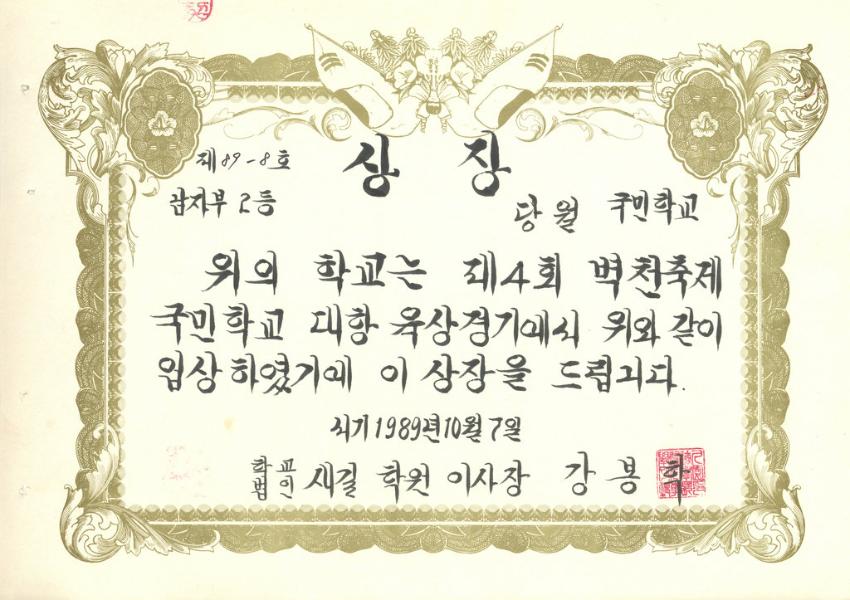 제 89-8호
상장
남자부 2등
당월 국민학교
위의 학교는 제4회 벽천축제
국민학교 대항 육상경기에서 위와 같이
입상 하였기에 이 상장을 드립니다.
서기 1989년 10월 7일
학교법인 새결 학원 이사장 강봉학